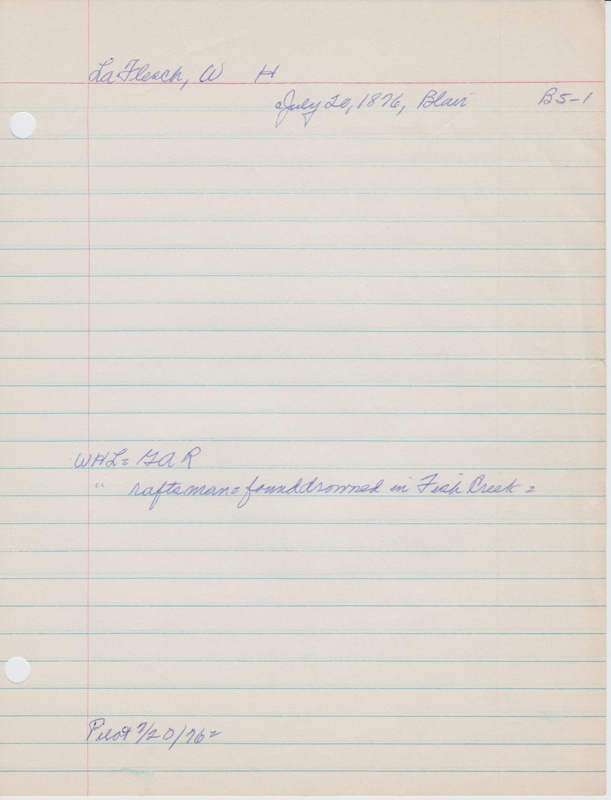 LaFlesch, W H
July 20, 1876, Blair BS-1
WHL= GAR
" raftsman= found drowned in Fish Creek =
Pilot 7/20/76=